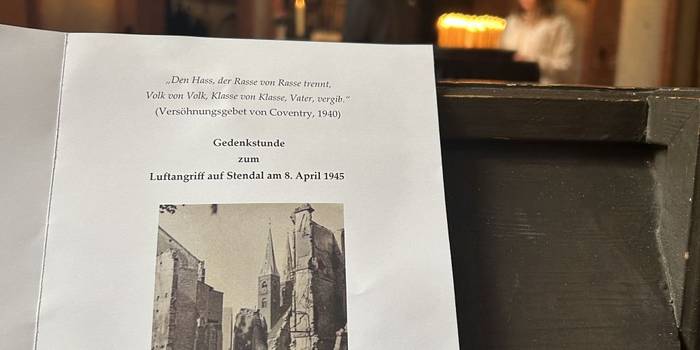 „Den Hass, der Rasse von Rasse trennt,
Volk von Volk, Klasse von Klasse, Vater, vergib.“
(Versöhnungsgebet von Coventry, 1940)
Gedenkstunde
zum
Luftangriff auf Stendal am 8. April 1945